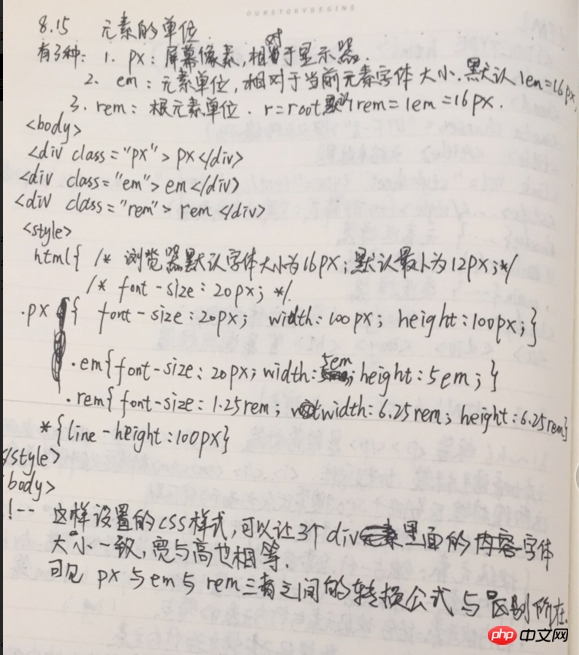 OURSTORYBEGINS
8.15 元素的单位
有3种: 1. px: 屏幕像素, 相对于显示器.
2. em: 元素单位, 相对于当前元素字体大小. 默认1em=16px.
3. rem: 根元素单位. r=root 默认rem=1em=16px.
<body>
<div class="px">px</div>
<div class="em">em</div>
<div class="rem">rem</div>
<style>
html{ /* 浏览器默认字体大小为16px; 默认最小为12px; */
/* font-size: 20px; */
.px { font-size: 20px; width: 100px; height: 100px; }
.em{font-size: 20px; width: 5em; height: 5em; }
.rem{font-size: 1.25rem; width: 6.25rem; height: 6.25rem}
*{line-height: 100px}
</style>
body>
!-- 这样设置的css样式, 可以让3个div里面的内容字体
大小一致, 宽与高也相等.
可见 px与em与rem三者之间的转换公式与区别所在.
php 中文网